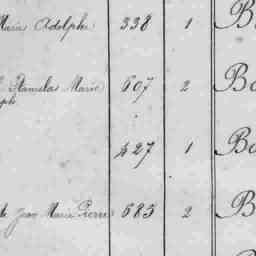 Marie Adolphe 338 1 B
Stanislas Marie 607 2 Bo
427 1 Bo
Jean Marie Pierre 685 2 B